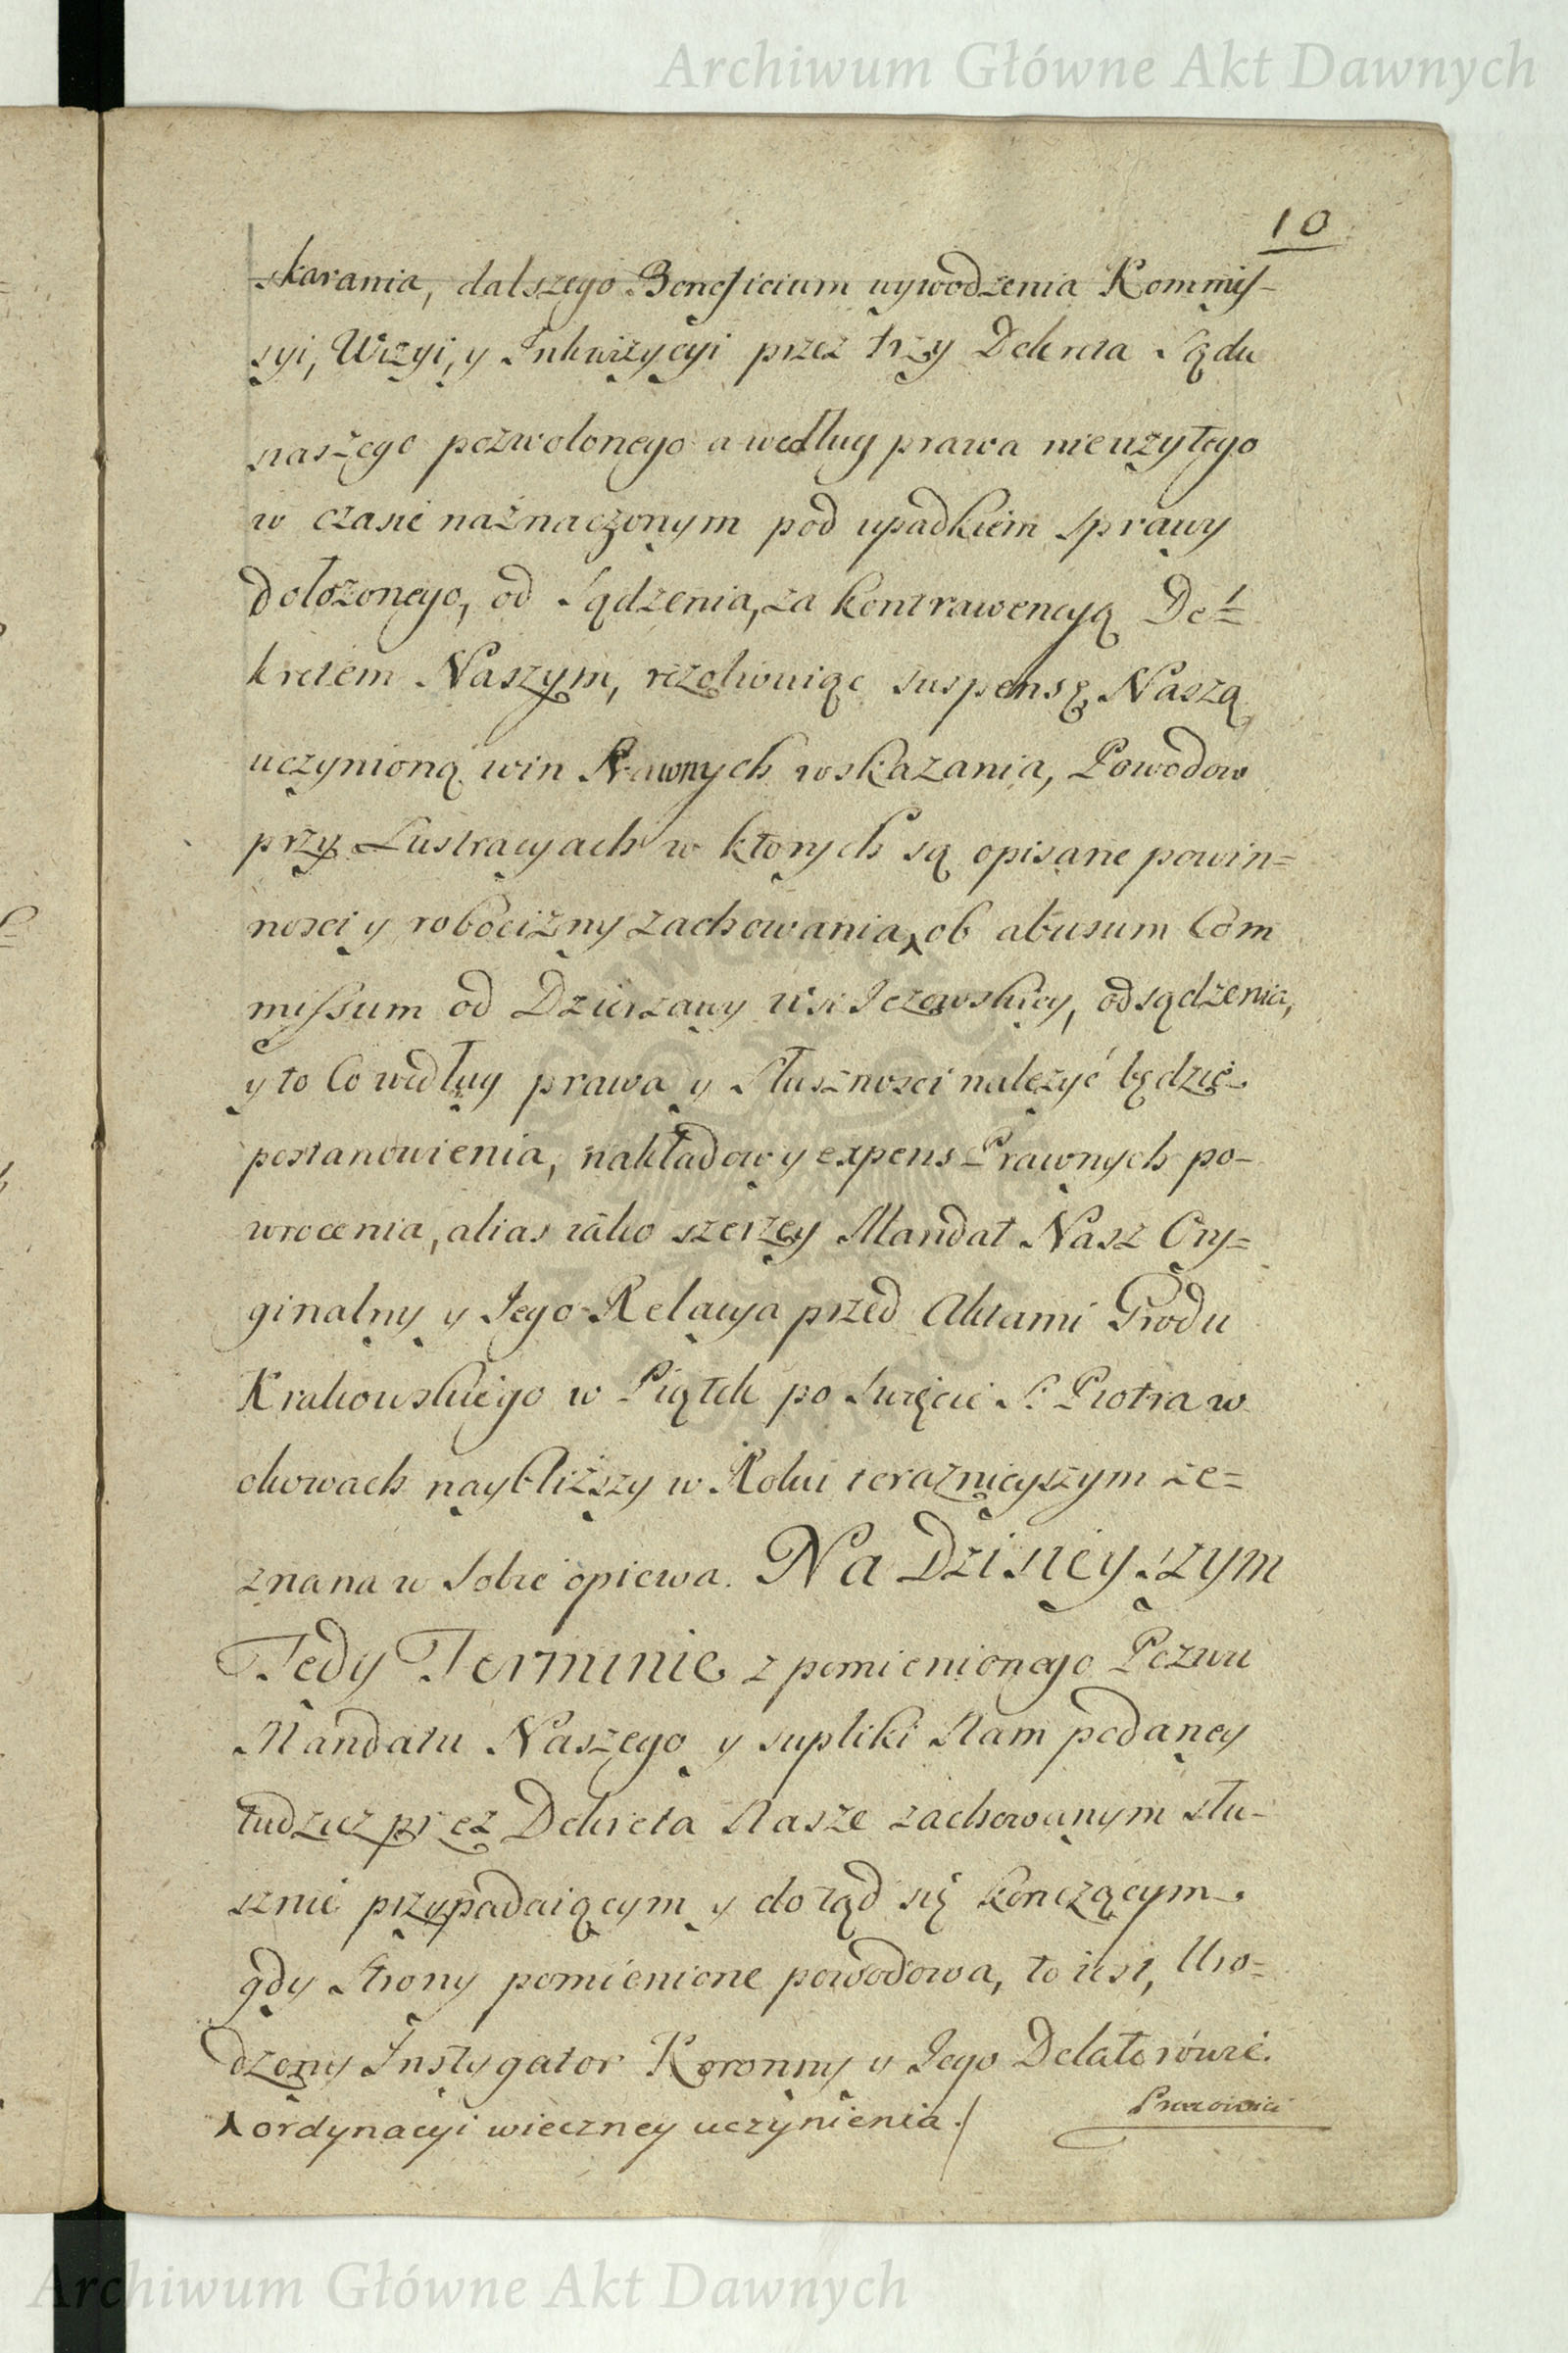 Archiwum Główne Akt Dawnych
10
skarania, dalszego Beneficium wywodzenia Kommis-
syi, Wizyi, y Inkwizycyi przez trzy Dekreta Sądu
naszego pozwolonego a według prawa nieużytego
w czasie naznaczonym pod upadkiem sprawy
dołożonego, od Sądzenia, za kontrawencyą De=
kretem Naszym, rezolwuiąc suspensę Naszą
uczynioną win Prawnych wskazania, Powodow
przy Lustracyach w ktorych są opisane powin=
nosci y robocizny zachowania, ⁁ ob abusum Com
missum od Dzierzawy wsi Jczowskiey, odsądzenia,
y to Co według prawa y Słusznosci należyć będzie
postanowienia, nakładow y expens Prawnych po-
wrocenia, alias iako szerzey Mandat Nasz Ory=
ginalny y Jego Relacya przed Aktami Grodu
Krakowskiego w Piątek po Swięcie S. Piotra w
okowach nayblizszy w Roku teraznieyszym ze=
znana w Sobie opiewa. Na Dzisieyszym
Tedy Terminie z pomienionego Pozwu
Mandatu Naszego y supliki Nam podaney
tudziez przez Dekreta Nasze zachowanym słu-
sznie przypadaiącym y do tąd się konczącym
gdy Strony pomienione powodowa, to iest, Uro=
dzony Instygator Koronny y Jego Delatorowie
⁁ ordynacyi wieczney uczynienia./
Pracowici
Archiwum Główne Akt Dawnych